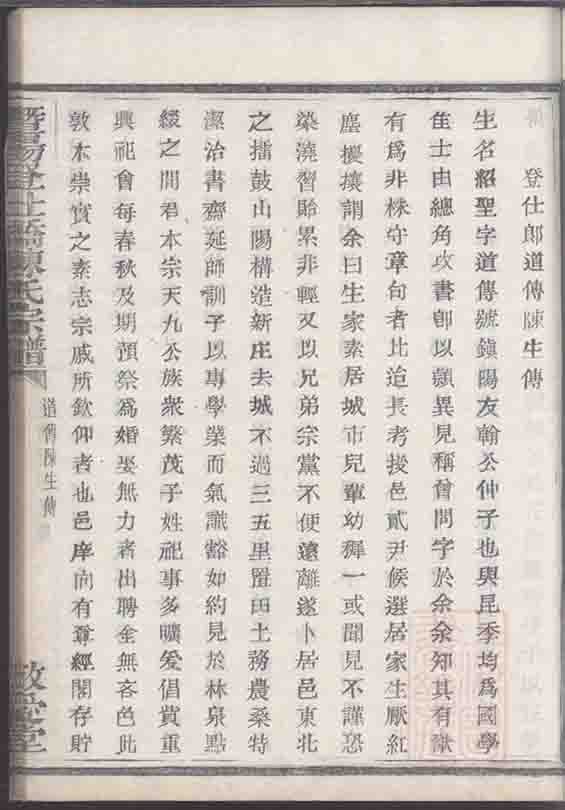 登仕郎道傳陳生傳
生名紹聖字道傳號鎮陽友翰公仲子也與昆季均爲國學
隹士由總角攻書卽以穎異見稱曾問字於余余知其有猷
有爲非株守章句者比迨長考授邑貳尹候選居家生厭紅
塵擾攘謂余曰生家素居城市兒輩幼穉一或聞見不謹恐
染澆習貽累非輕又以兄弟宗黨不便遠離遂卜居邑東北
之擂鼓山陽構造新庄去城不過三五里置田土務農桑特
潔治書齋延師訓子以專學業而氣識豁如約見於林泉點
綴之間君本宗天九公族衆繁茂子姓祀事多曠爰倡貲重
興祀會每春秋及期預祭爲婚娶無力者出聘金無吝色此
敦本崇實之素志宗戚所欽仰者也邑庠向有尊經閣存貯
暨陽登仕橋陳氏宗譜
道傳陳生傳
敬愛堂